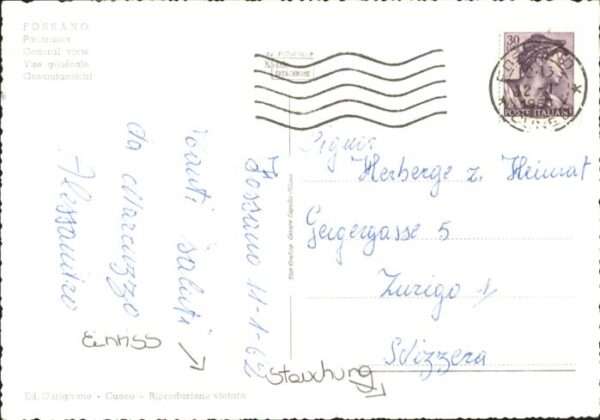 FOSSANO
Panorama
General view
Vue générale
Gesamtansicht
Fossano 11-1-62
Tanti saluti
da Maruzzo
Alessandro
30
POSTE ITALIANE
Signir
Herberge z. Heimat
Geigergasse 5
Zurigo 1
Svizzera
Einriss
Stauchung
Ed. Darighimo - Cuneo - Riproduzione vietata